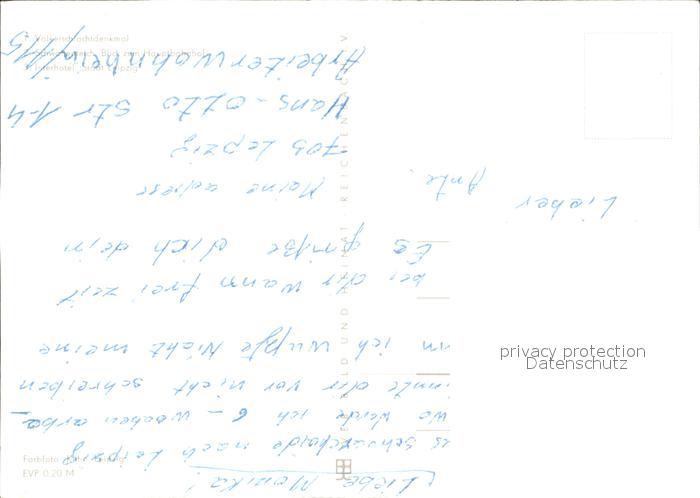 Völkerschlachtdenkmal
Blick zum Hauptbahnhof
Interhotel "Stadt Leipzig"
BILD UND HEIMAT · REICHENBACH I. V.
EVP 0.20 M
privacy protection
Datenschutz
Liebe Monika!
nach Leipzig
wo werde ich 6 - wochen arba_
dir vor nicht schreiben
ich wußte Nicht meine
bei dir wann frei zeit
Es grüße dich dein
Lieber Ante.
Meine adress
705 Leipzig
Hans-otto str 1-4
Arbeiterwohnheim/15